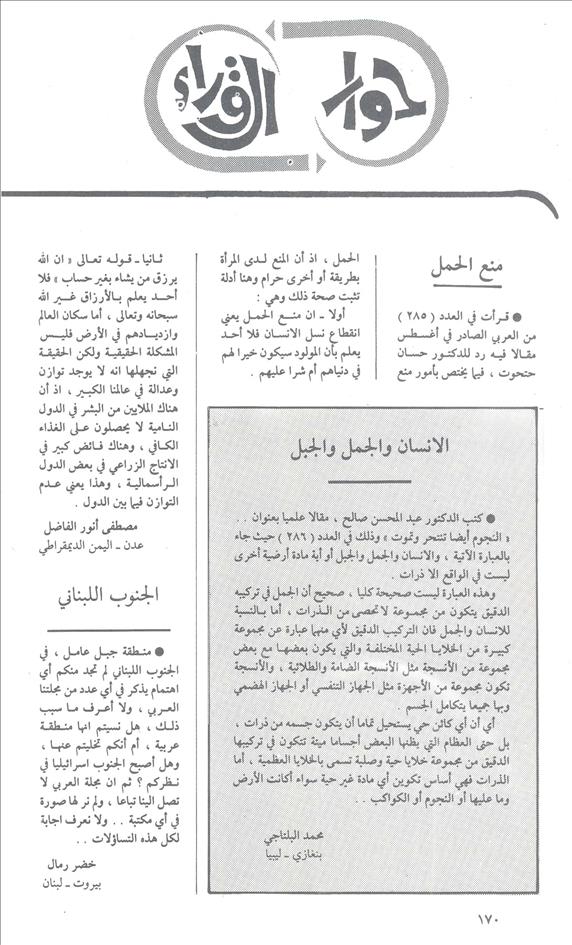 حوار القراء
منع الحمل
● قرأت في العدد ( ٢٨٥ )
من العربي الصادر في أغسطس
مقالا فيه رد للدكتور حسان
حتحوت ، فيما يختص بأمور منع
الحمل ، اذ أن المنع لدى المرأة
بطريقة أو أخرى حرام وهنا أدلة
تثبت صحة ذلك وهي :
أولا ـ ان منع الحمل يعني
انقطاع نسل الانسان فلا أحد
يعلم بأن المولود سيكون خيرا لهم
في دنياهم أم شرا عليهم .
ثانيا ـ قوله تعالى « ان الله
يرزق من يشاء بغير حساب » فلا
أحد يعلم بالأرزاق غير الله
سبحانه وتعالى ، أما سكان العالم
وازديادهم في الأرض فليس
المشكلة الحقيقية ولكن الحقيقة
التي نجهلها انه لا يوجد توازن
وعدالة في عالمنا الكبير ، اذ أن
هناك الملايين من البشر في الدول
النامية لا يحصلون على الغذاء
الكافي ، وهناك فائض كبير في
الانتاج الزراعي في بعض الدول
الرأسمالية ، وهذا يعني عدم
التوازن فيما بين الدول .
مصطفى أنور الفاضل
عدن ـ اليمن الديمقراطي
الانسان والجمل والجبل
● كتب الدكتور عبد المحسن صالح ، مقالا علميا بعنوان . .
« النجوم أيضا تنتحر وتموت » وذلك في العدد ( ٢٨٦ ) حيث جاء
بالعبارة الآتية ، والانسان والجمل والجبل أو أية مادة أرضية أخرى
ليست في الواقع الا ذرات .
وهذه العبارة ليست صحيحة كليا ، صحيح أن الجمل في تركيبه
الدقيق يتكون من مجموعة لا تحصى من الذرات ، أما بالنسبة
للانسان والجمل فان التركيب الدقيق لأي منهما عبارة عن مجموعة
كبيرة من الخلايا الحية المختلفة والتي يكون بعضها مع بعض
مجموعة من الأنسجة مثل الأنسجة الضامة والطلائية ، والأنسجة
تكون مجموعة من الأجهزة مثل الجهاز التنفسي أو الجهاز الهضمي
وبها جميعا يتكامل الجسم .
أي أن أي كائن حي يستحيل تماما أن يتكون جسمه من ذرات ،
بل حتى العظام التي يظنها البعض أجساما ميتة تتكون في تركيبها
الدقيق من مجموعة خلايا حية وصلبة تسمى بالخلايا العظمية ، أما
الذرات فهي أساس تكوين أي مادة غير حية سواء أكانت الأرض
وما عليها أو النجوم أو الكواكب . .
محمد البلتاجي
بنغازي ـ ليبيا
الجنوب اللبناني
● منطقة جبل عامل ، في
الجنوب اللبناني لم تجد منكم أي
اهتمام يذكر في أي عدد من مجلتنا
العربي ، ولا أعرف ما سبب
ذلك ، هل نسيتم انها منطقة
عربية ، أم أنكم تخليتم عنها ،
وهل أصبح الجنوب اسرائيليا في
نظركم ؟ ثم ان مجلة العربي لا
تصل الينا تباعا ، ولم نر لها صورة
في أي مكتبة . . ولا نعرف اجابة
لكل هذه التساؤلات . .
خضر رمال
بيروت ـ لبنان
١٧٠